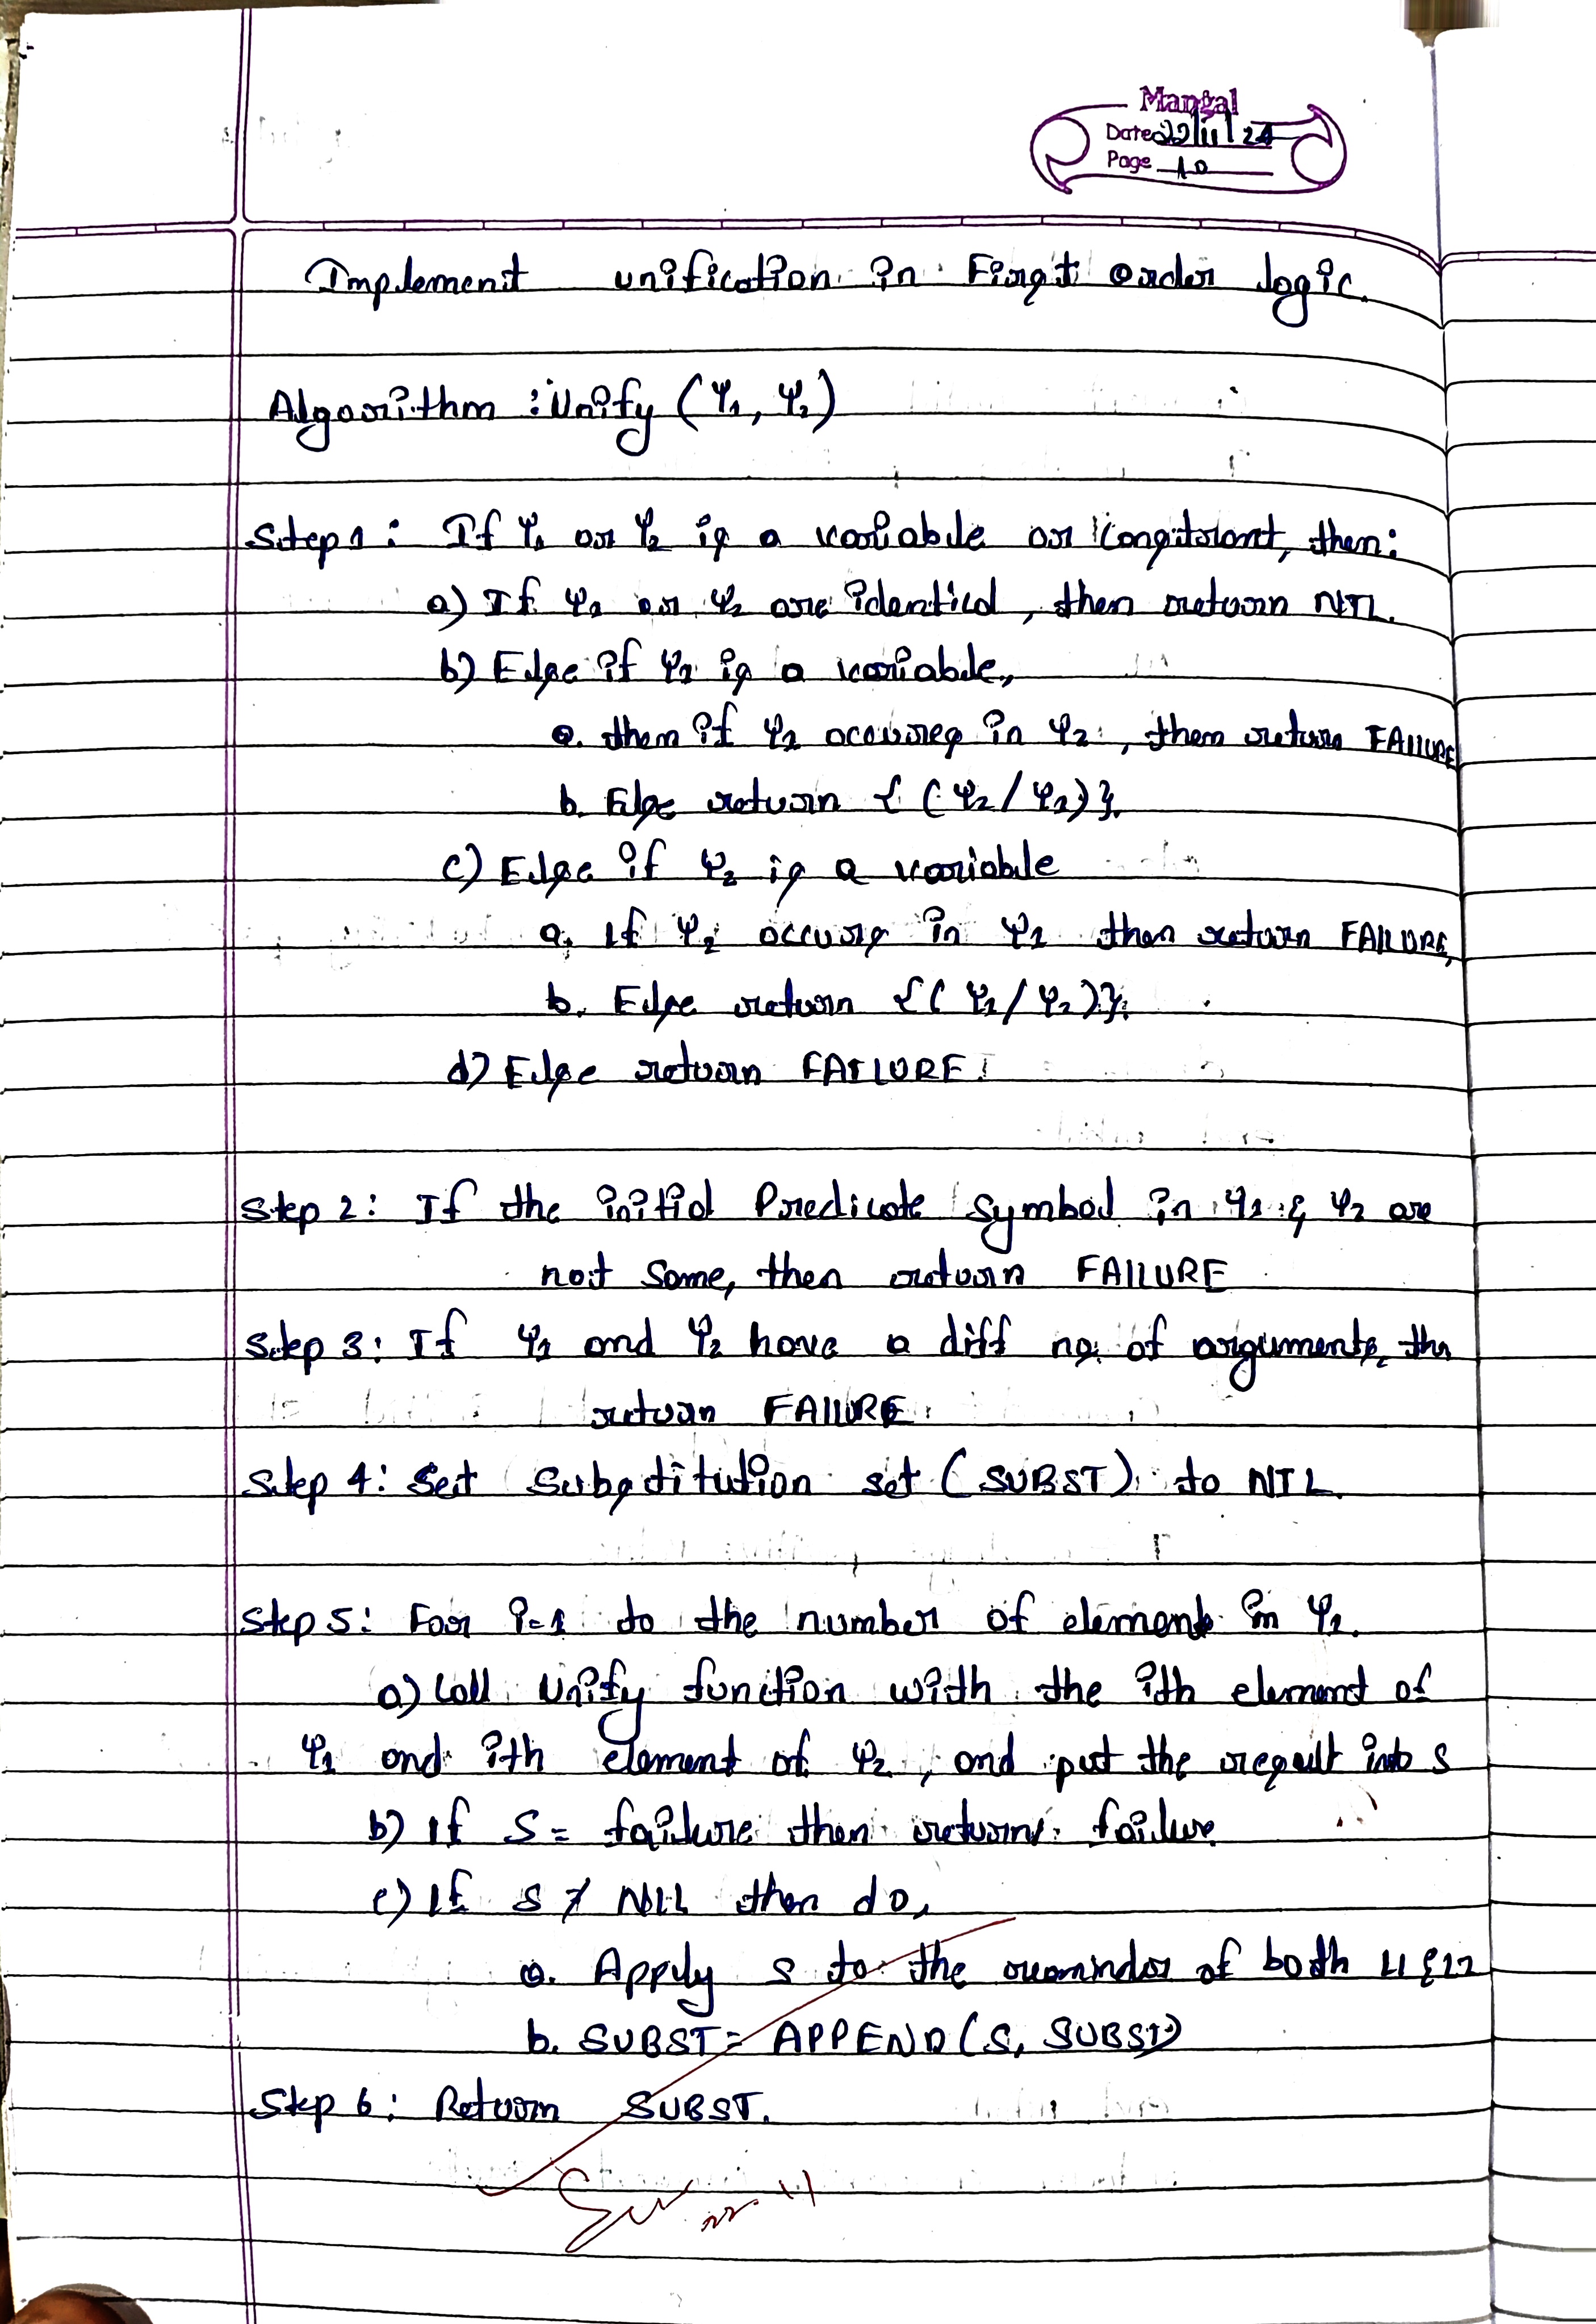 Mangal
Date 22/11/24
Page 10
Implement unification in First order logic.
Algorithm : Unify (Ψ1, Ψ2)
Step 1: If Ψ1 or Ψ2 is a variable or constant, then:
a) If Ψ1 or Ψ2 are identical, then return NIL.
b) Else if Ψ1 is a variable,
a. then if Ψ1 occures in Ψ2, then return FAILURE
b. Else return { (Ψ2/Ψ1)}.
c) Else if Ψ2 is a variable
a. If Ψ2 occurs in Ψ1 then return FAILURE,
b. Else return {( Ψ1/Ψ2)}.
d) Else return FAILURE.
Step 2: If the initial Predicate symbol in Ψ1 & Ψ2 are
not same, then return FAILURE
Step 3: If Ψ1 and Ψ2 have a diff no. of arguments, the
return FAILURE
Step 4: Set Substitution set (SUBST) to NIL.
Step 5: For i=1 to the number of element in Ψ1.
a) Call Unify function with the ith element of
Ψ1 and ith element of Ψ2, and put the result into S
b) If S = failure then returns failure
c) If S ≠ NIL then do,
a. Apply S to the remindor of both L1 & L2
b. SUBST = APPEND (S, SUBST)
Step 6: Return SUBST.